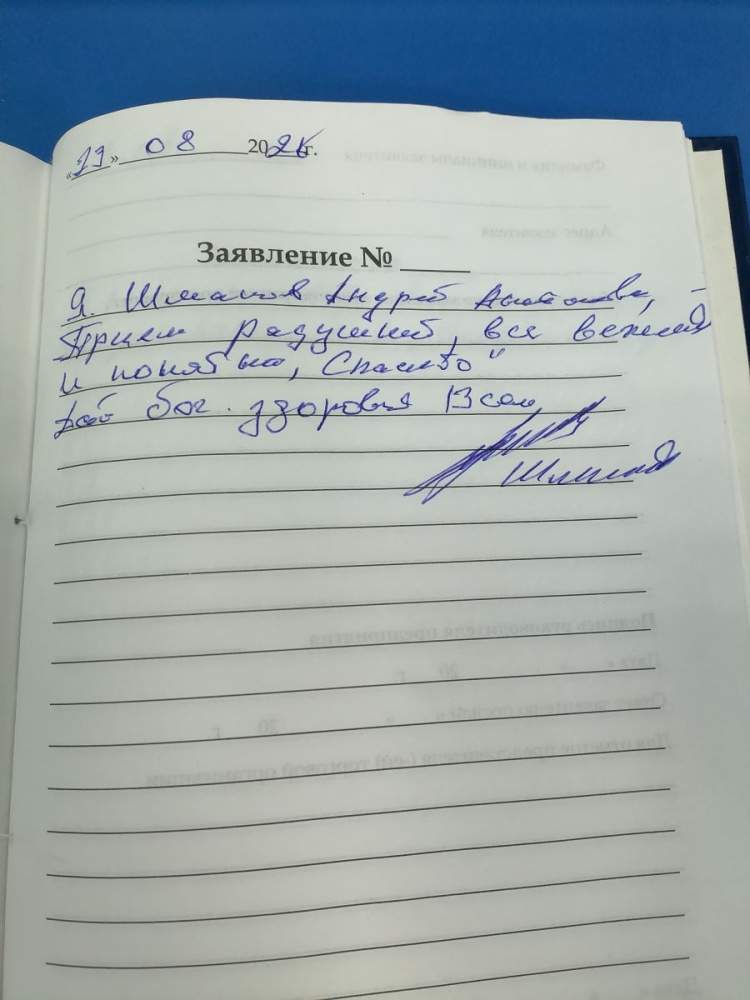 «29» 08 2026г.
Заявление №
Я. Шмаков Андрей
Прием радушний, все вежливо
и понятно, Спасибо"
Дай бог. здоровья Всем
Шмаков